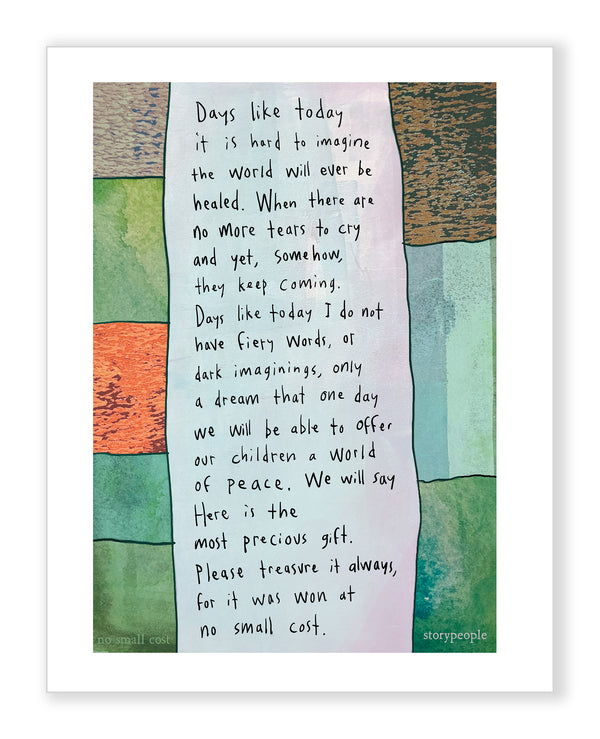 Days like today
it is hard to imagine
the world will ever be
healed. When there are
no more tears to cry
and yet, somehow,
they keep coming.
Days like today I do not
have fiery words, or
dark imaginings, only
a dream that one day
we will be able to offer
our children a world
of peace. We will say
Here is the
most precious gift.
Please treasure it always,
for it was won at
no small cost.
no small cost
storypeople